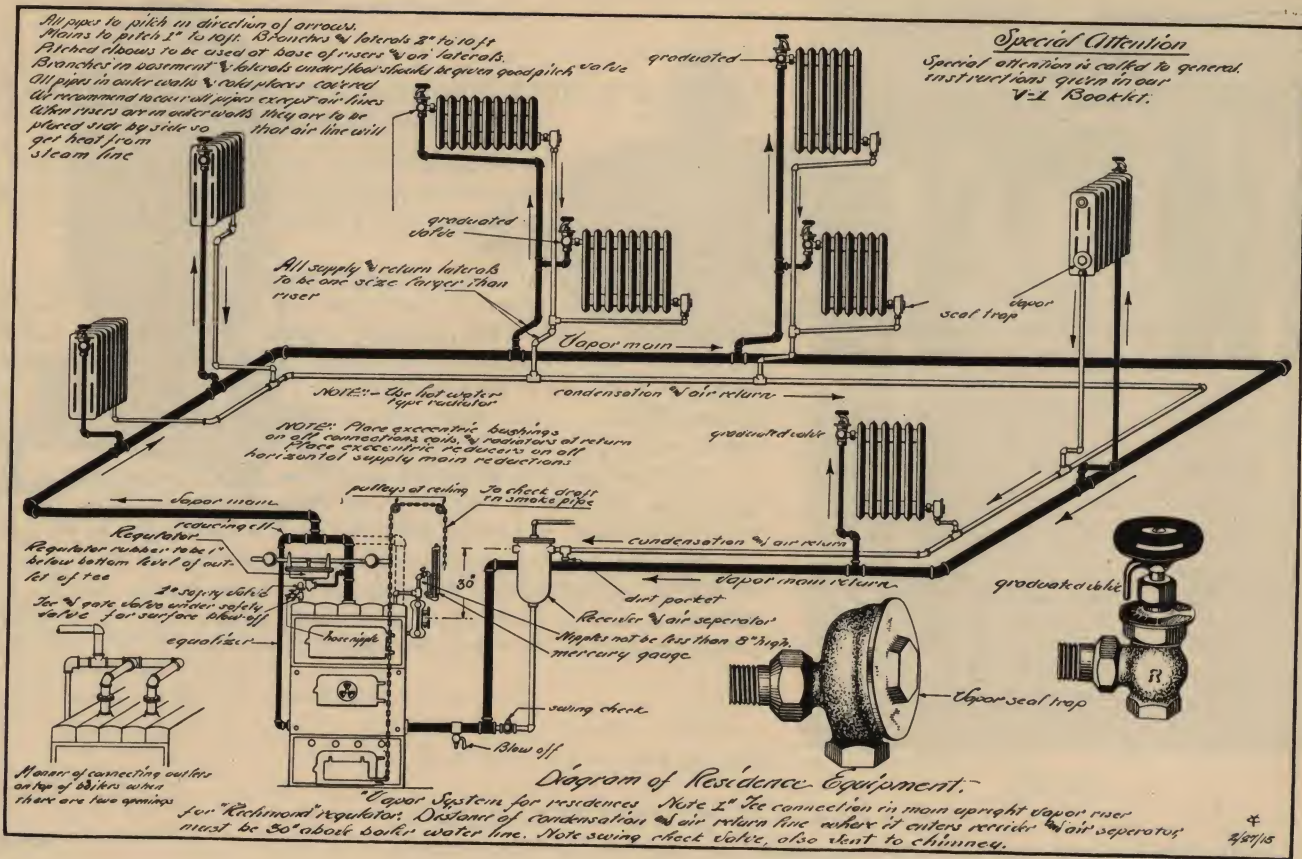 All pipes to pitch in direction of arrows.
Mains to pitch 1" to 10 ft. Branches and laterals 2" to 10 ft
Pitched elbows to be used at base of risers and on laterals.
Branches in basement and laterals under floor should be given good pitch
All pipes in outer walls and cold places covered
We recommend to cover all pipes except air lines
When risers are in outer walls they are to be
placed side by side so that air line will
get heat from
steam line
valve
graduated
Special Attention
Special attention is called to general
instructions given in our
V-1 Booklet.
graduated
valve
All supply and return laterals
to be one size larger than
riser
vapor
seal trap
Vapor main
NOTE:- Use hot water
type radiator
condensation and air return
NOTE: Place exccentric bushings
on all connections, coils, and radiators at return
Place exccentric reducers on all
horizontal supply main reductions
graduated valve
Vapor main
pulleys at ceiling
To check draft
in smoke pipe
reducing ell
Regulator
Regulator rubber to be 1"
below bottom level of out-
let of tee
2" safety valve
Tee and gate valve under safety
valve for surface blow-off
equalizer
hose nipple
30"
condensation and air return
Vapor main return
dirt pocket
Receiver and air seperator
Nipples not be less than 8" high.
mercury gauge
graduated valve
R
Vapor seal trap
swing check
Blow off
Manner of connecting outlets
on top of boilers when
there are two openings
Diagram of Residence Equipment.
"Vapor System for residences Note 1" Tee connection in main upright vapor riser
for "Richmond" regulator. Distance of condensation and air return line where it enters receider and air seperator,
must be 30" above boiler water line. Note swing check valve, also vent to chimney.
2/27/15